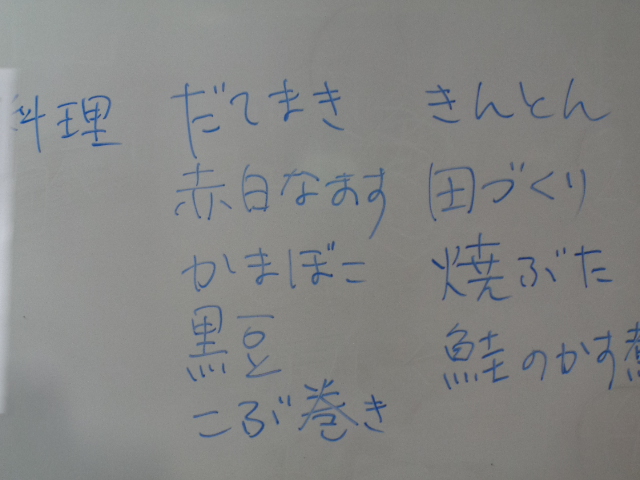 料理 だてまき きんとん
赤白なます 田づくり
かまぼこ 焼ぶた
黒豆 鮭のかす煮
こぶ巻き